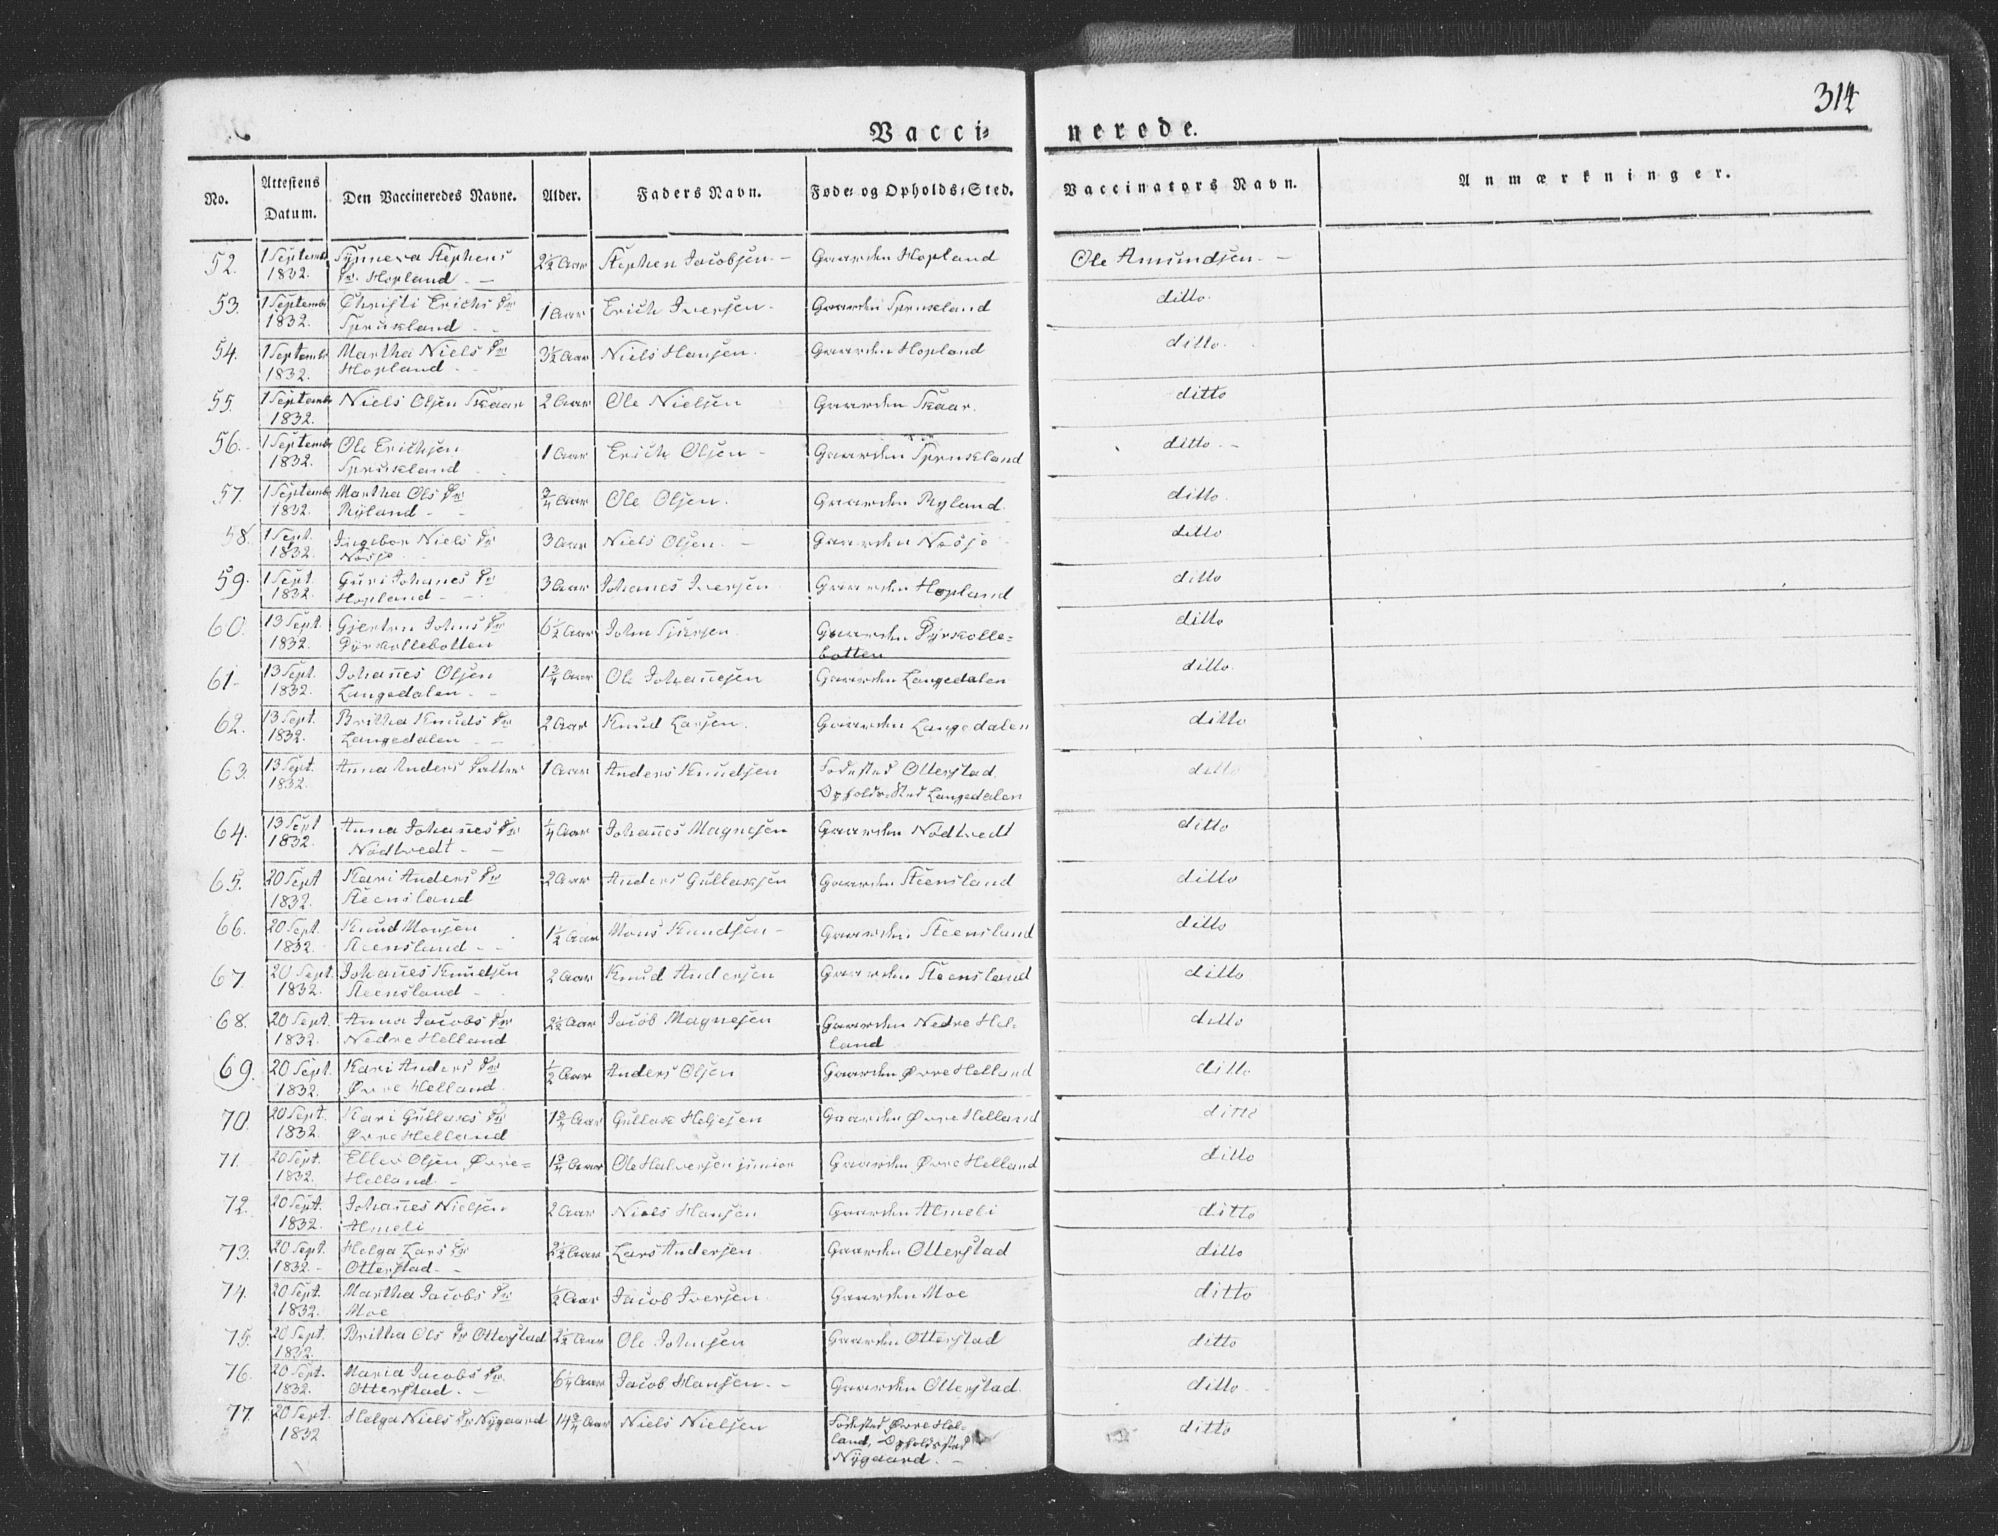 314
Vacci- nerede.
No. Attestens Datum. Den Vaccineredes Navne. Alder. Faders Navn. Føde- og Opholds-Sted. Vaccinators Navn. Anmærkninger.
52. 1 Septemb 1832. Synneva Stephens Dr. Hopland - 2½ Aar Stephen Jacobsen - Gaarden Hopland Ole Amundsen. -
53. 1 Septemb 1832. Christi Erichs Dr Sprukland - 1 Aar Erich Iversen - Gaarden Sprukland ditto.
54. 1 Septemb 1832. Martha Niels Dr Hopland - 3½ Aar Niels Hansen. Gaarden Hopland ditto.
55. 1 Septemb 1832. Niels Olsen Skaar 2 Aar Ole Nielsen Gaarden Skaar. ditto
56. 1 Septemb 1832. Ole Erichsen Sprukland 1 Aar Erich Olsen - Gaarden Sprukland ditto. -
57. 1 Septemb 1832. Martha Ols Dr Myland - ¾ Aar Ole Olsen. Gaarden Myland. ditto.
58. 1 Sept. 1832. Ingebor Niels Dr Nosje 3 Aar Niels Olsen. - Gaarden Nosje ditto
59. 1 Sept. 1832. Guri Johanes Dr Hopland - 3 Aar Johanes Iversen Gaarden Hopland ditto
60. 13 Sept. 1832. Gjertru Johns Dr Dyrkollebotten 6½ Aar John Gaarden Dyrkolle- botten ditto
61. 13 Sept. 1832. Johañes Olsen Langedalen - 1¾ Aar Ole Johañesen Gaarden Langedalen ditto.
62. 13 Sept. 1832. Britha Knuds Dr Langedalen - 2 Aar Knud Larsen. Gaarden Langedalen ditto
63. 13 Sept. 1832. Anna Anders Datter 1 Aar Anders Knudsen Fødested Otterstad. Opholds-Sted Langedalen ditto
64. 13 Sept 1832. Anna Johañes Dr Nødtvedt - ¼ Aar Johañes Magnesen Gaarden Nødtvedt ditto
65. 20 Sept 1832. Kari Anders Dr Steensland 2 Aar Anders Gullaksen Gaarden Steensland ditto
66. 20 Sept. 1832. Knud Monsen Steensland - 1½ Aar Mons Knudsen - Gaarden Steensland ditto
67. 20 Sept. 1832. Johañes Knudsen Steensland - 2 Aar Knud Andersen Gaarden Steensland ditto
68. 20 Sept. 1832. Anna Jacobs Dr Nedre Helland 2½ Aar Jacob Magnesen Gaarden Nedre Hel- land ditto
69. 20 Sept. 1832. Kari Anders Dr Øvre Helland. ½ Aar Anders Olsen Gaarden Øvre Helland ditto
70. 20 Sept. 1832. Kari Gullaks Dr Øvre Helland 1¾ Aar Gullak Helgesen Gaarden Øvre Helland ditto
71. 20 Sept. 1832. Olsen Øvre- Helland. - 1¾ Aar Ole Halvorsen junior Gaarden Øvre Helland ditto
72. 20 Sept. 1832. Johañes Nielsen Almeli 2 Aar Niels Hansen Gaarden Almeli ditto
73. 20 Sept. 1832. - Helga Lars Dr Otterstad. - 2½ Aar Lars Andersen. Gaarden Otterstad ditto
74. 20 Sept. 1832. Martha Jacobs Dr Moe ½ Aar Jacob Iversen. Gaarden Moe ditto
75. 20 Sept. 1832. Britha Ols Dr Otterstad 2½ Aar Ole Johnsen Gaarden Otterstad ditto
76. 20 Sept. 1832. Maria Jacobs Dr Otterstad. - 6¼ Aar Jacob Hansen. - Gaarden Otterstad. ditto
77. 20 Sept. 1832 Helga Niels Dr Nygaard 14¾ Aar Niels Nielsen Fødested Øvre Hel- land, Opholdssted Nygaard. - ditto